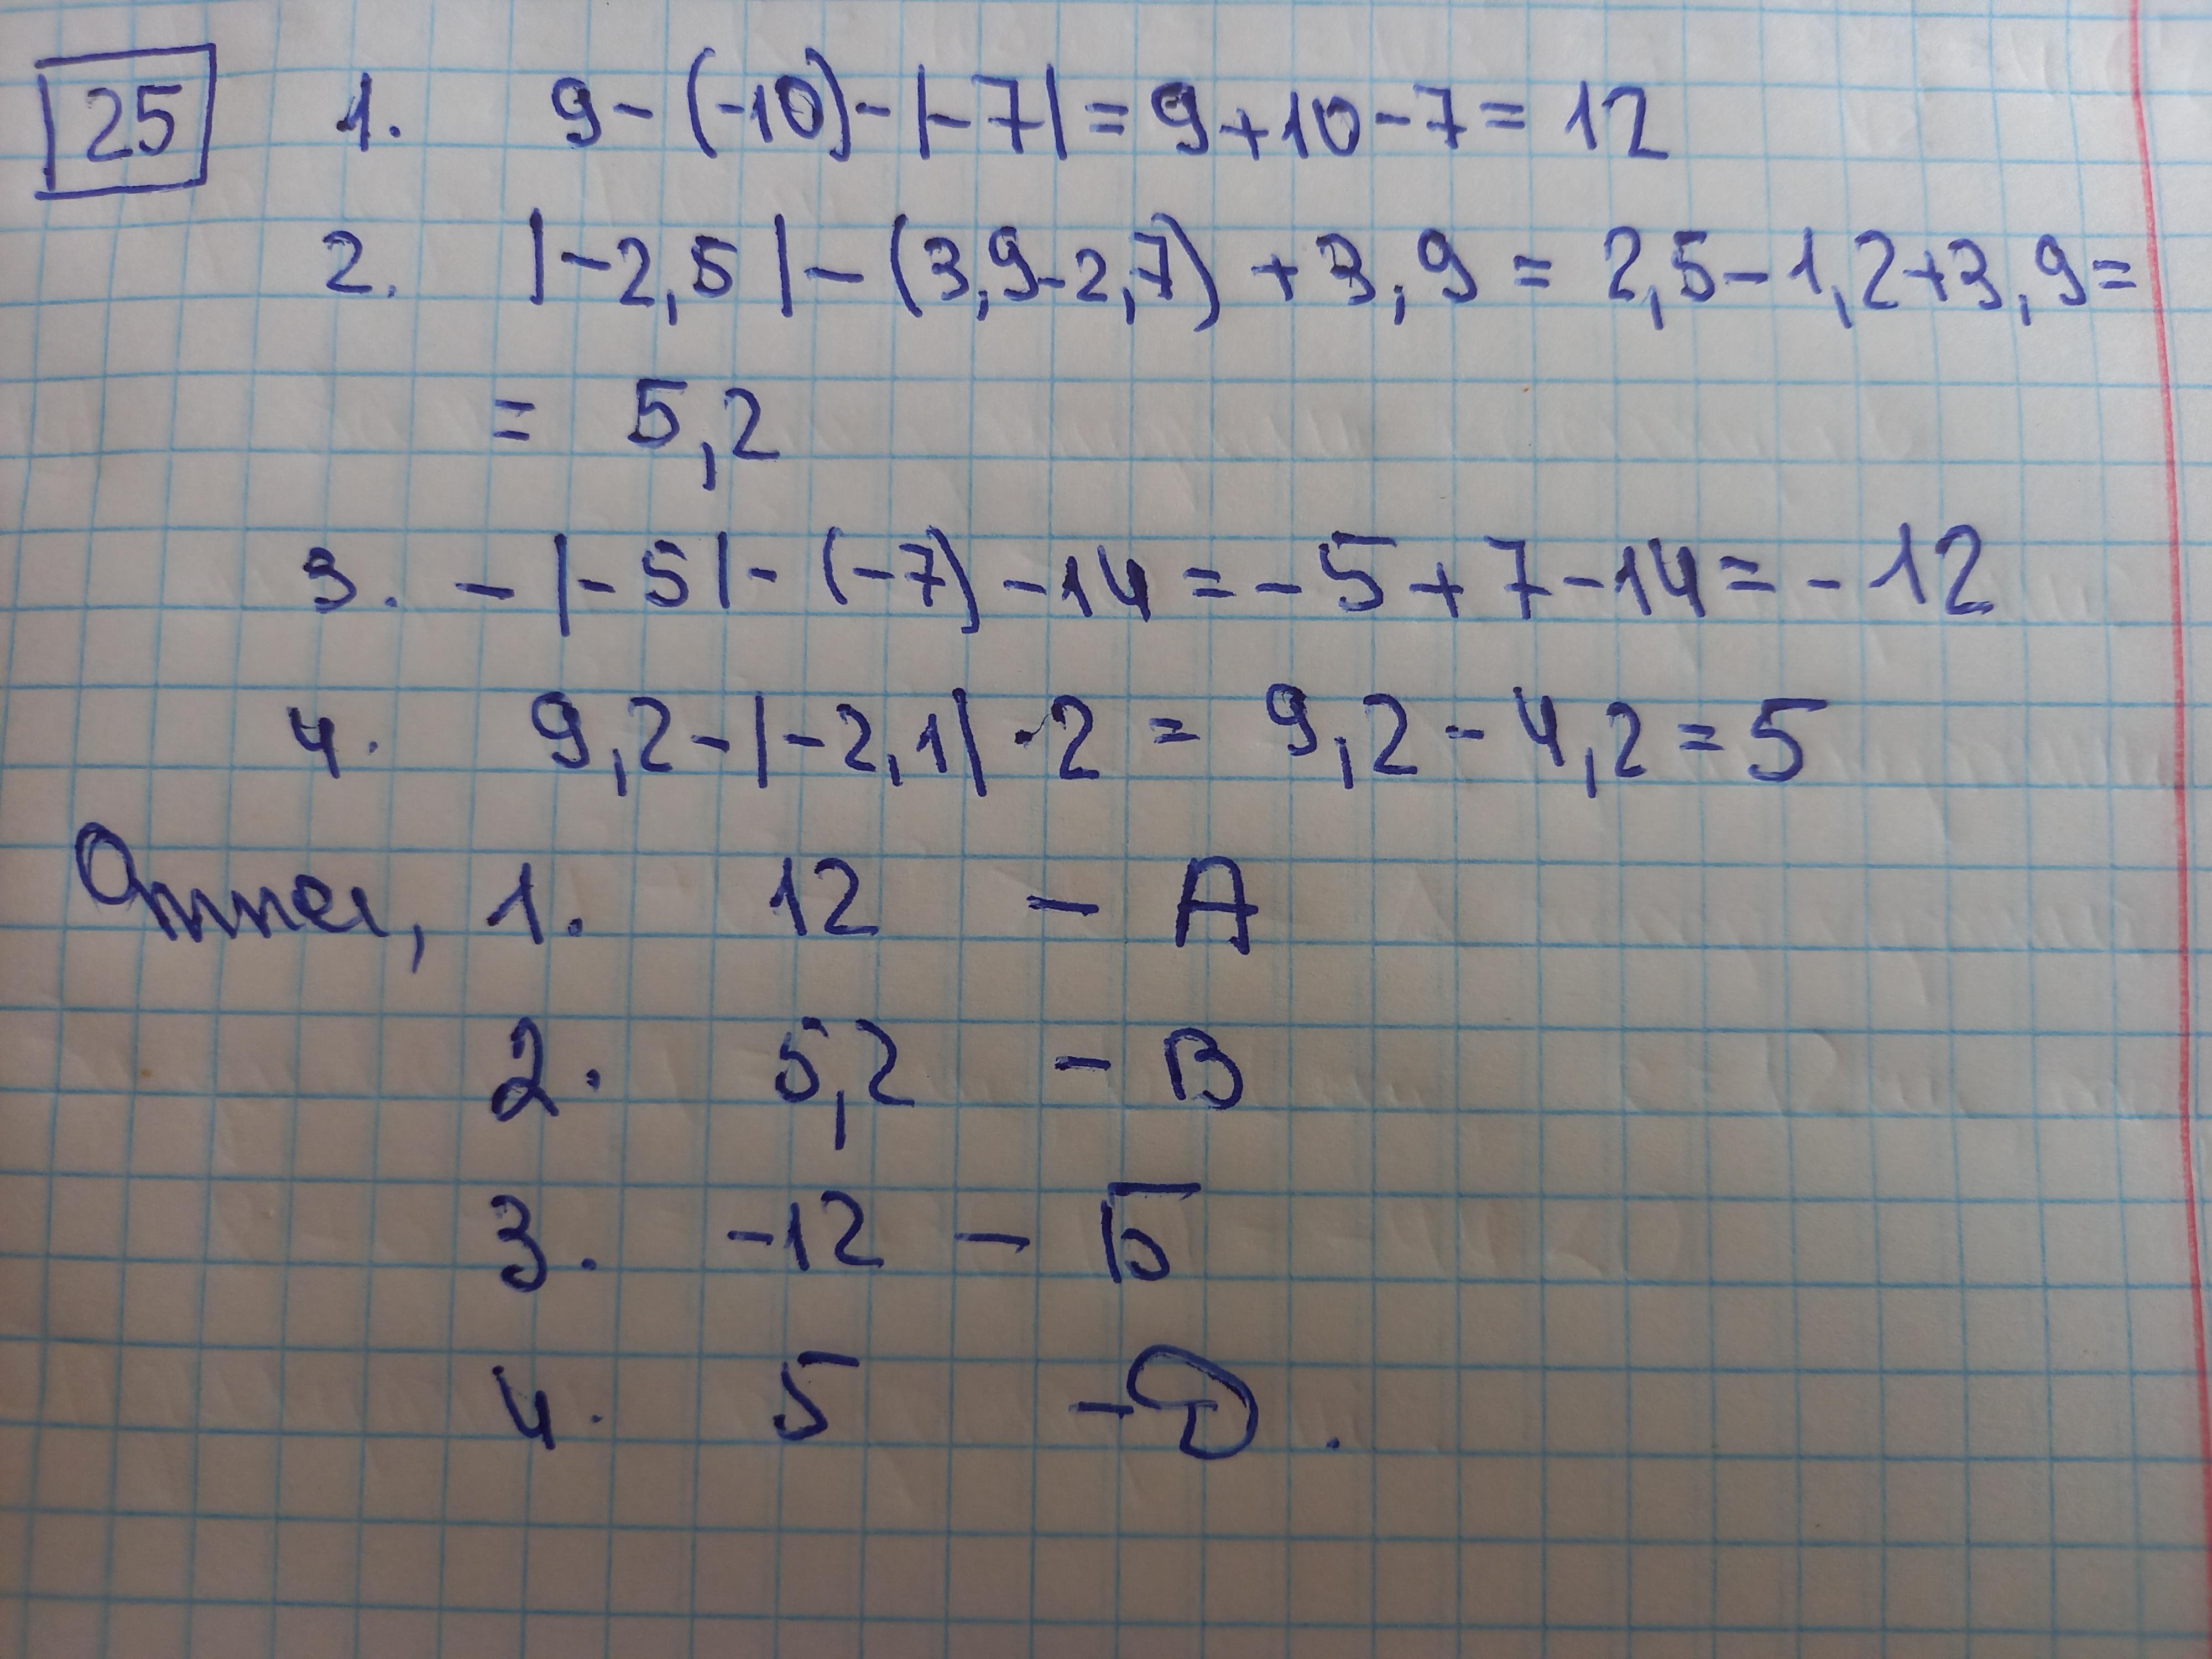 25 1. 9-(-10)-|-7|=9+10-7=12
2. |-2,5|-(3,9-2,7)+3,9=2,5-1,2+3,9=
= 5,2
3. -|-5|-(-7)-14=-5+7-14=-12
4. 9,2-|-2,1|·2=9,2-4,2=5
Отже, 1. 12 - А
2. 5,2 - В
3. -12 - Б
4. 5 - Д.